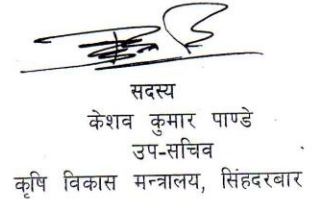 सदस्य
केशव कुमार पाण्डे
उप-सचिव
कृषि विकास मन्त्रालय, सिंहदरबार